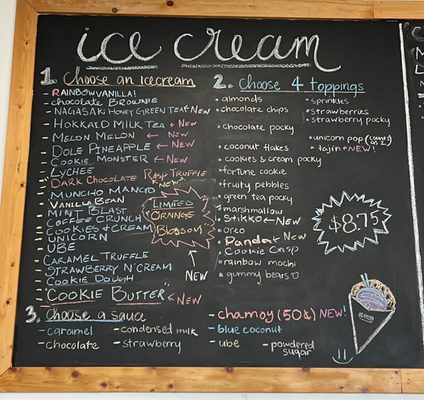 ice cream
1. Choose an icecream
- RAINBOW VANILLA!
- chocolate BROWNIE
- NAGASAKI HONEY GREEN TEA ← NEW
- HOKKAIDO MILK TEA ← NEW
- MELON MELON ← NEW
- DOLE PINEAPPLE ← NEW
- COOKIE MONSTER ← NEW
- LYCHEE
- DARK CHOCOLATE RASP TRUFFLE
NEW
- MUNCHO MANGO
- VANILLA BEAN
- MINT BLAST
- COFFEE CRUNCH
- COOKIES & CREAM
- UNICORN
- UBE
- CARAMEL TRUFFLE
- STRAWBERRY N' CREAM
- COOKIE DOUGH
- "COOKIE BUTTER" ← NEW
LIMITED
"ORANGE
BLOSSOM"
NEW
2. Choose 4 toppings
• almonds
• chocolate chips
• chocolate pocky
• coconut flakes
• cookies & cream pocky
• fortune cookie
• fruity pebbles
• green tea pocky
• marshmallow
• Stikko ← NEW
• oreo
• Panda ← NEW
• Cookie Crisp
• rainbow mochi
• gummy bears
• sprinkles
• strawberries
• strawberry pocky
• unicorn pop (counts as 2)
• tajin ← NEW!
$8.75
3. Choose a sauce
- caramel
- chocolate
- condensed milk
- strawberry
- chamoy (50¢) NEW!
- blue coconut
- ube
- powdered
sugar